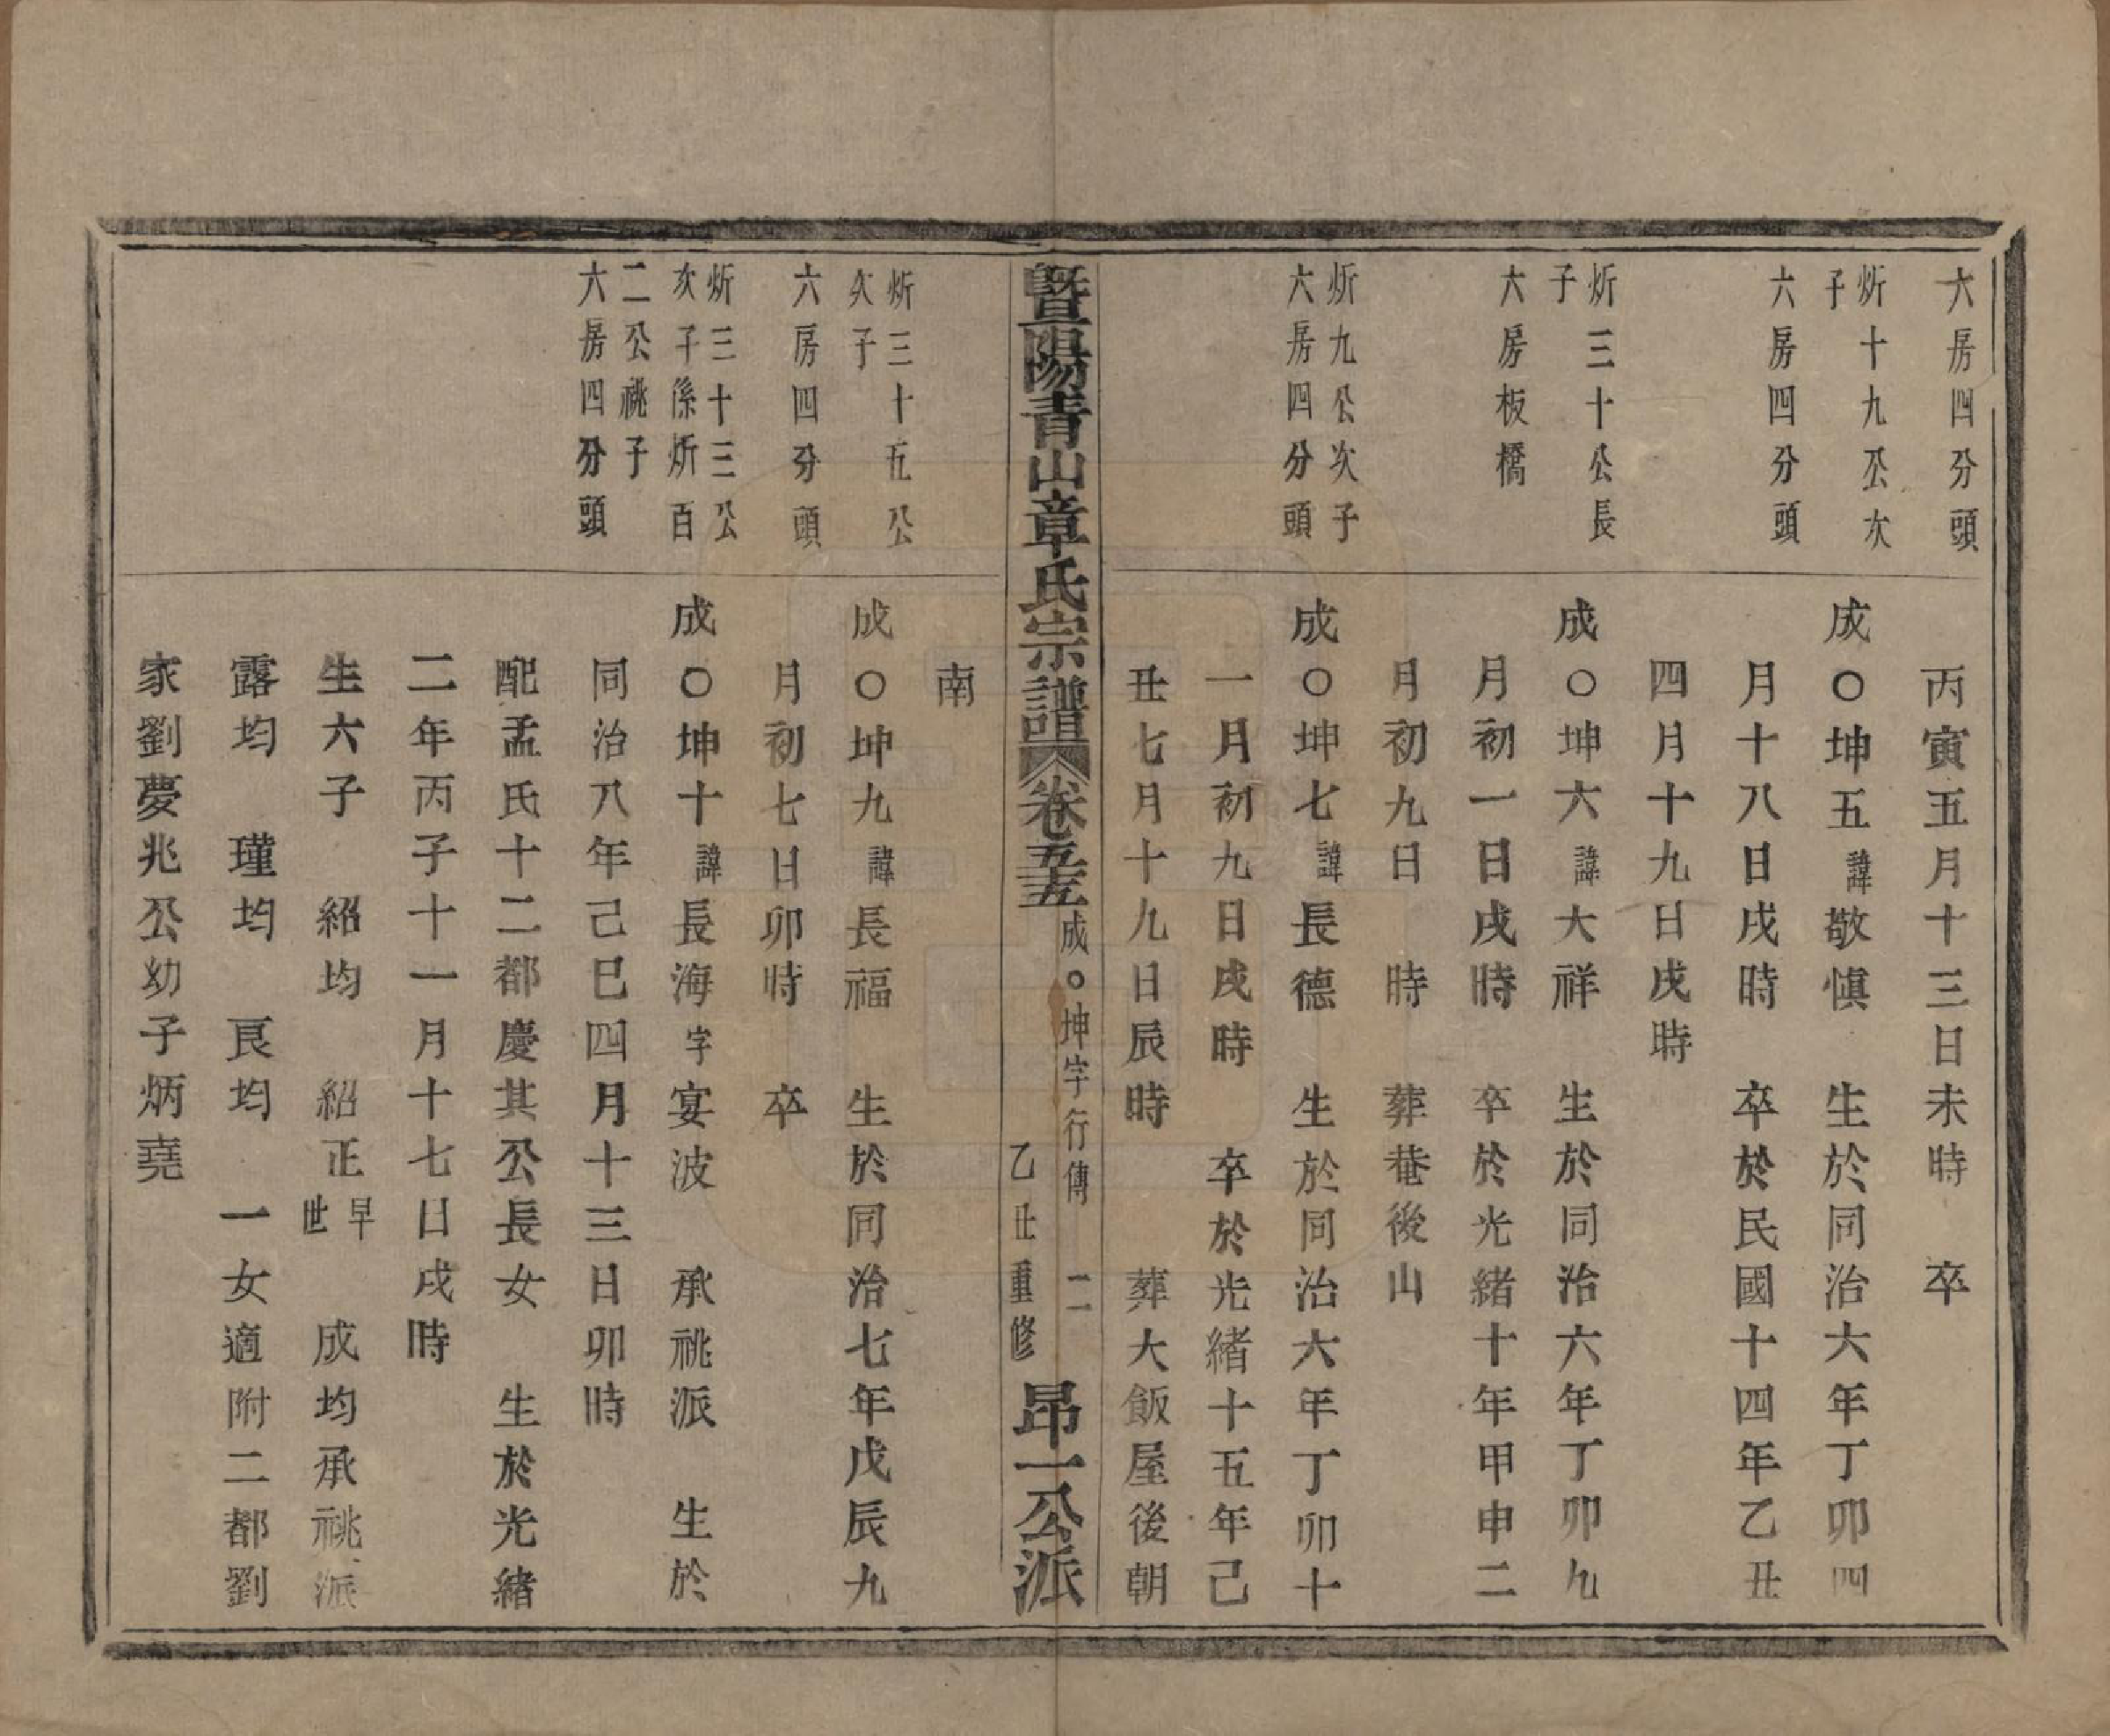 六房四分頭
丙寅五月十三日未時　卒
炘十九公次
子
成○坤五諱敬愼　生於同治六年丁卯四
六房四分頭
月十八日戌時　卒於民國十四年乙丑
四月十九日戌時
炘三十公長
子
成○坤六諱大祥　生於同治六年丁卯九
六房板橋
月初一日戌時　卒於光緒十年甲申二
月初九日　時　葬菴後山
炘九公次子
六房四分頭
成○坤七諱長德　生於同治六年丁卯十
一月初九日戌時　卒於光緒十五年己
丑七月十九日辰時　葬大飯屋後朝
暨陽青山章氏宗譜　卷五五　成○坤字行傳　二　乙丑重修　昂一公派
南
炘三十五公
次子
成○坤九諱長福　生於同治七年戊辰九
六房四分頭
月初七日卯時　卒
炘三十三公
次子係炘百
二公祧子
六房四分頭
成○坤十諱長海字宴波　承祧派　生於
同治八年己巳四月十三日卯時
配孟氏十二都慶其公長女　生於光緒
二年丙子十一月十七日戌時
生六子　紹均　紹正早世　成均承祧派
露均　瑾均　良均　一女適附二都劉
家劉夢兆公幼子炳堯